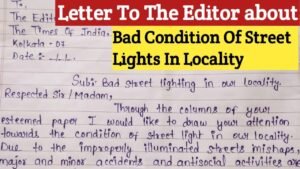 Letter To The Editor about
Bad Condition Of Street
Lights In Locality
To,
The Edit
The Times Of India,
Kolkata - 07
Date :-
Sub:- Bad street lighting in our locality.
Respected Sir/Madam,
Through the columns of your
esteemed paper I would like to draw your attention
towards the condition of street light in our locality.
Due to the improperly illuminated streets mishaps,
major and minor accidents and antisocial activities are